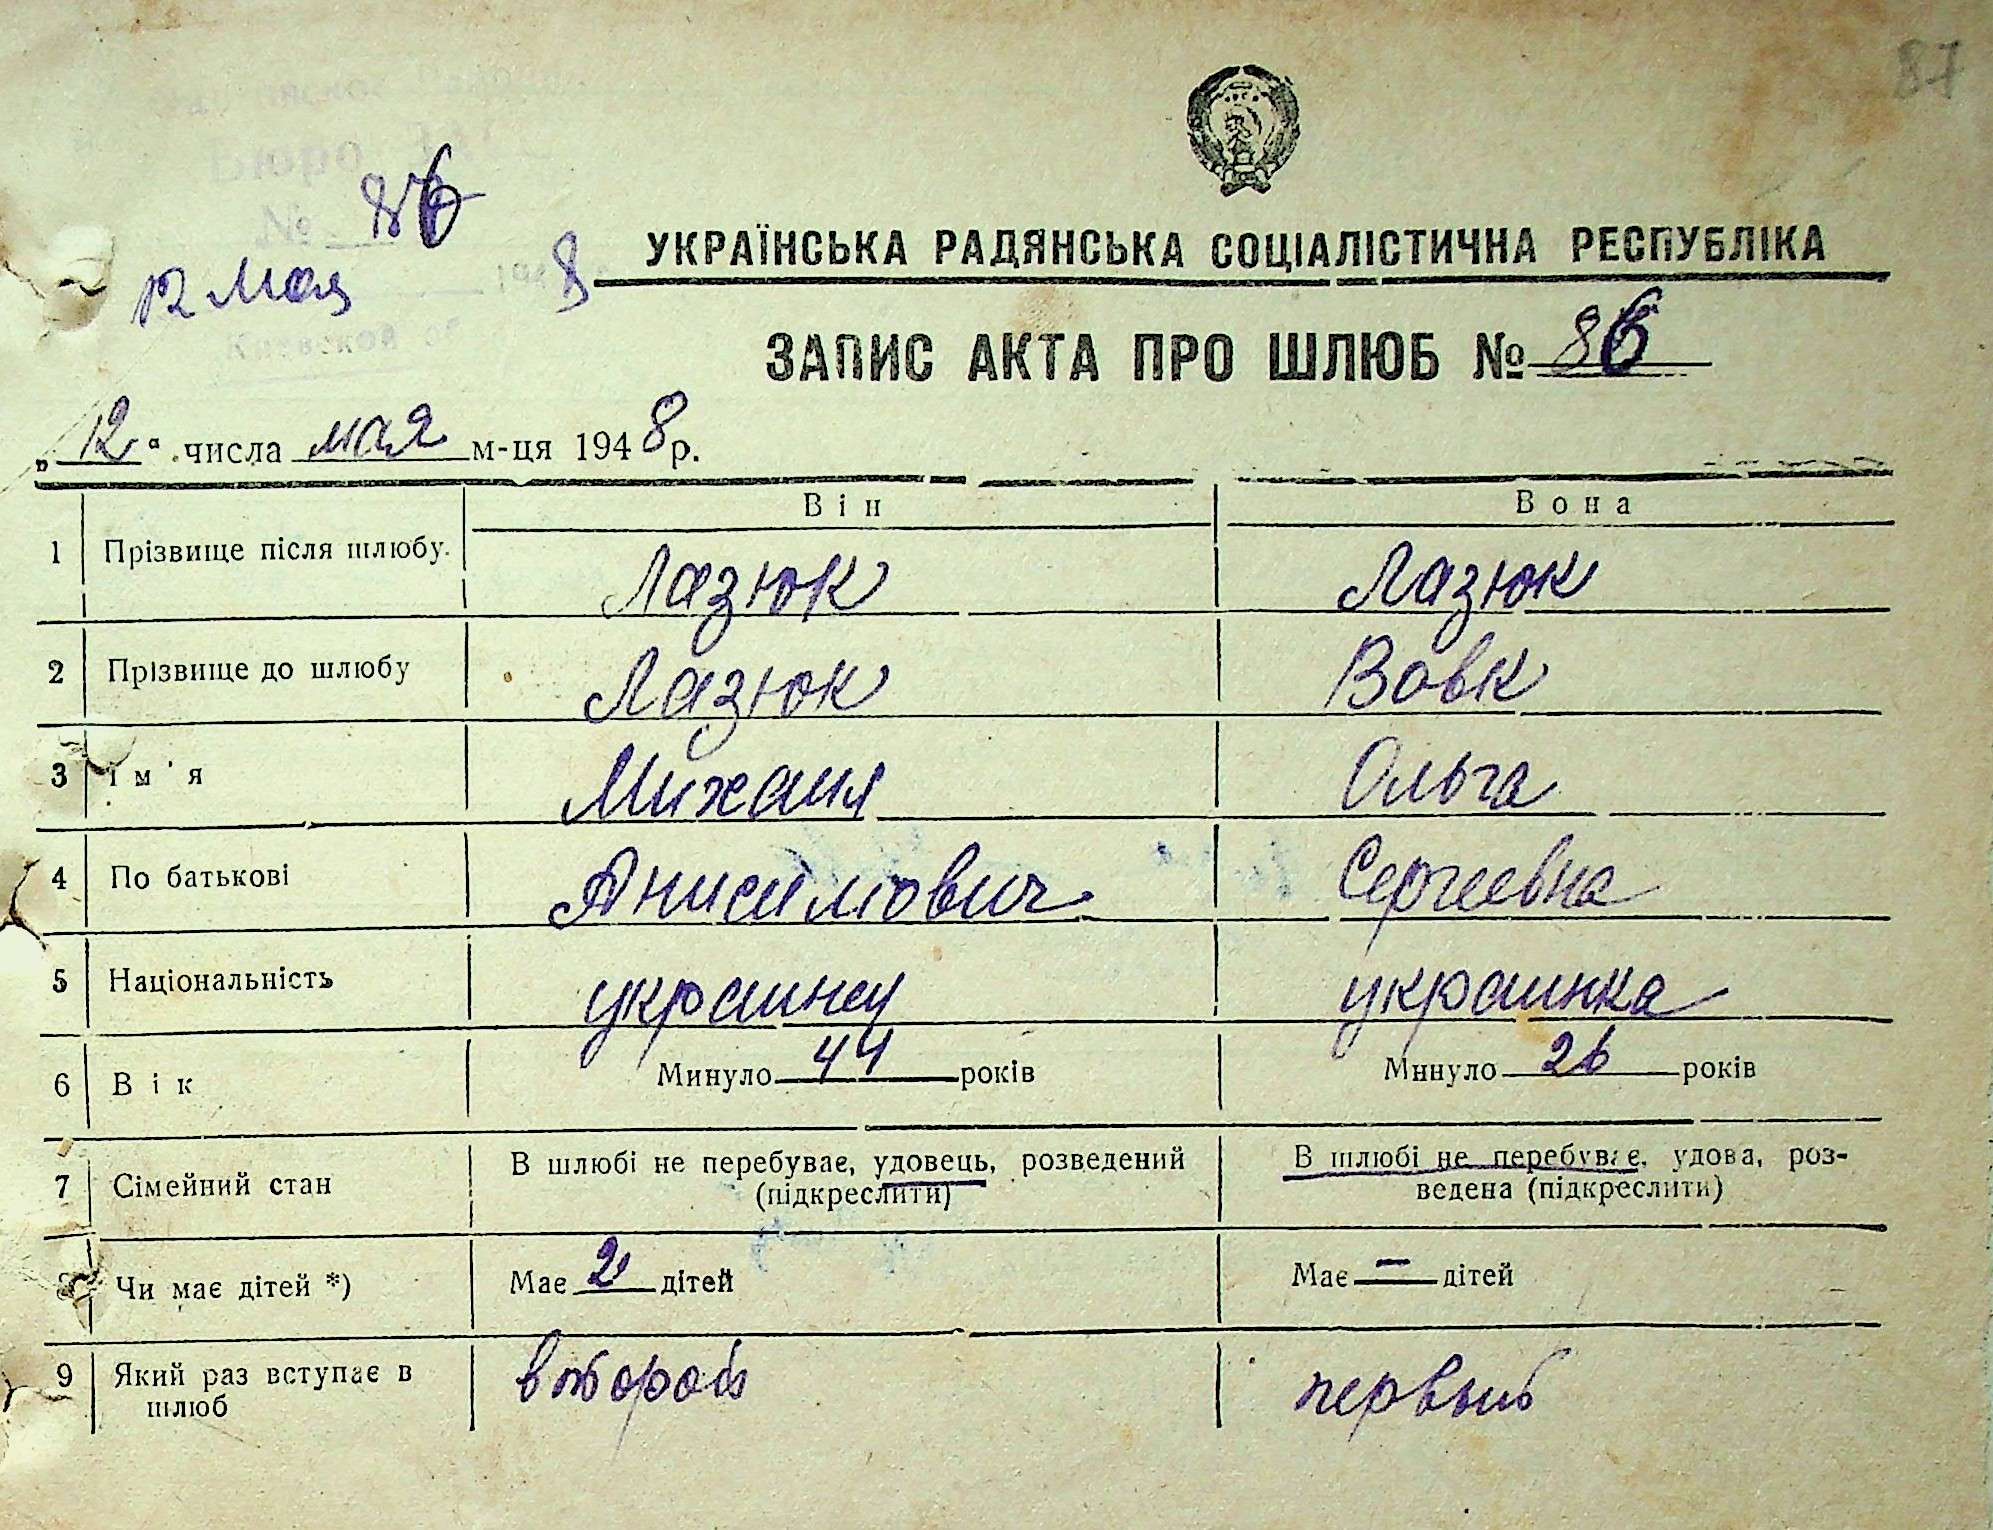 87
Бюро
№ 86
12 мая 1948
УКРАЇНСЬКА РАДЯНСЬКА СОЦІАЛІСТИЧНА РЕСПУБЛІКА
ЗАПИС АКТА ПРО ШЛЮБ № 86
„12“ числа мая м-ця 1948 р.
Він Вона
1 Прізвище після шлюбу. Лазюк Лазюк
2 Прізвище до шлюбу Лазюк Вовк
3 Ім'я Михаил Ольга
4 По батькові Анисимович Сергеевна
5 Національність украинец украинка
6 Вік Минуло 44 років Минуло 26 років
7 Сімейний стан В шлюбі не перебуває, удовець, розведений (підкреслити) В шлюбі не перебуває, удова, роз-
ведена (підкреслити)
8 Чи має дітей *) Має 2 дітей Має — дітей
9 Який раз вступає в шлюб второй первый